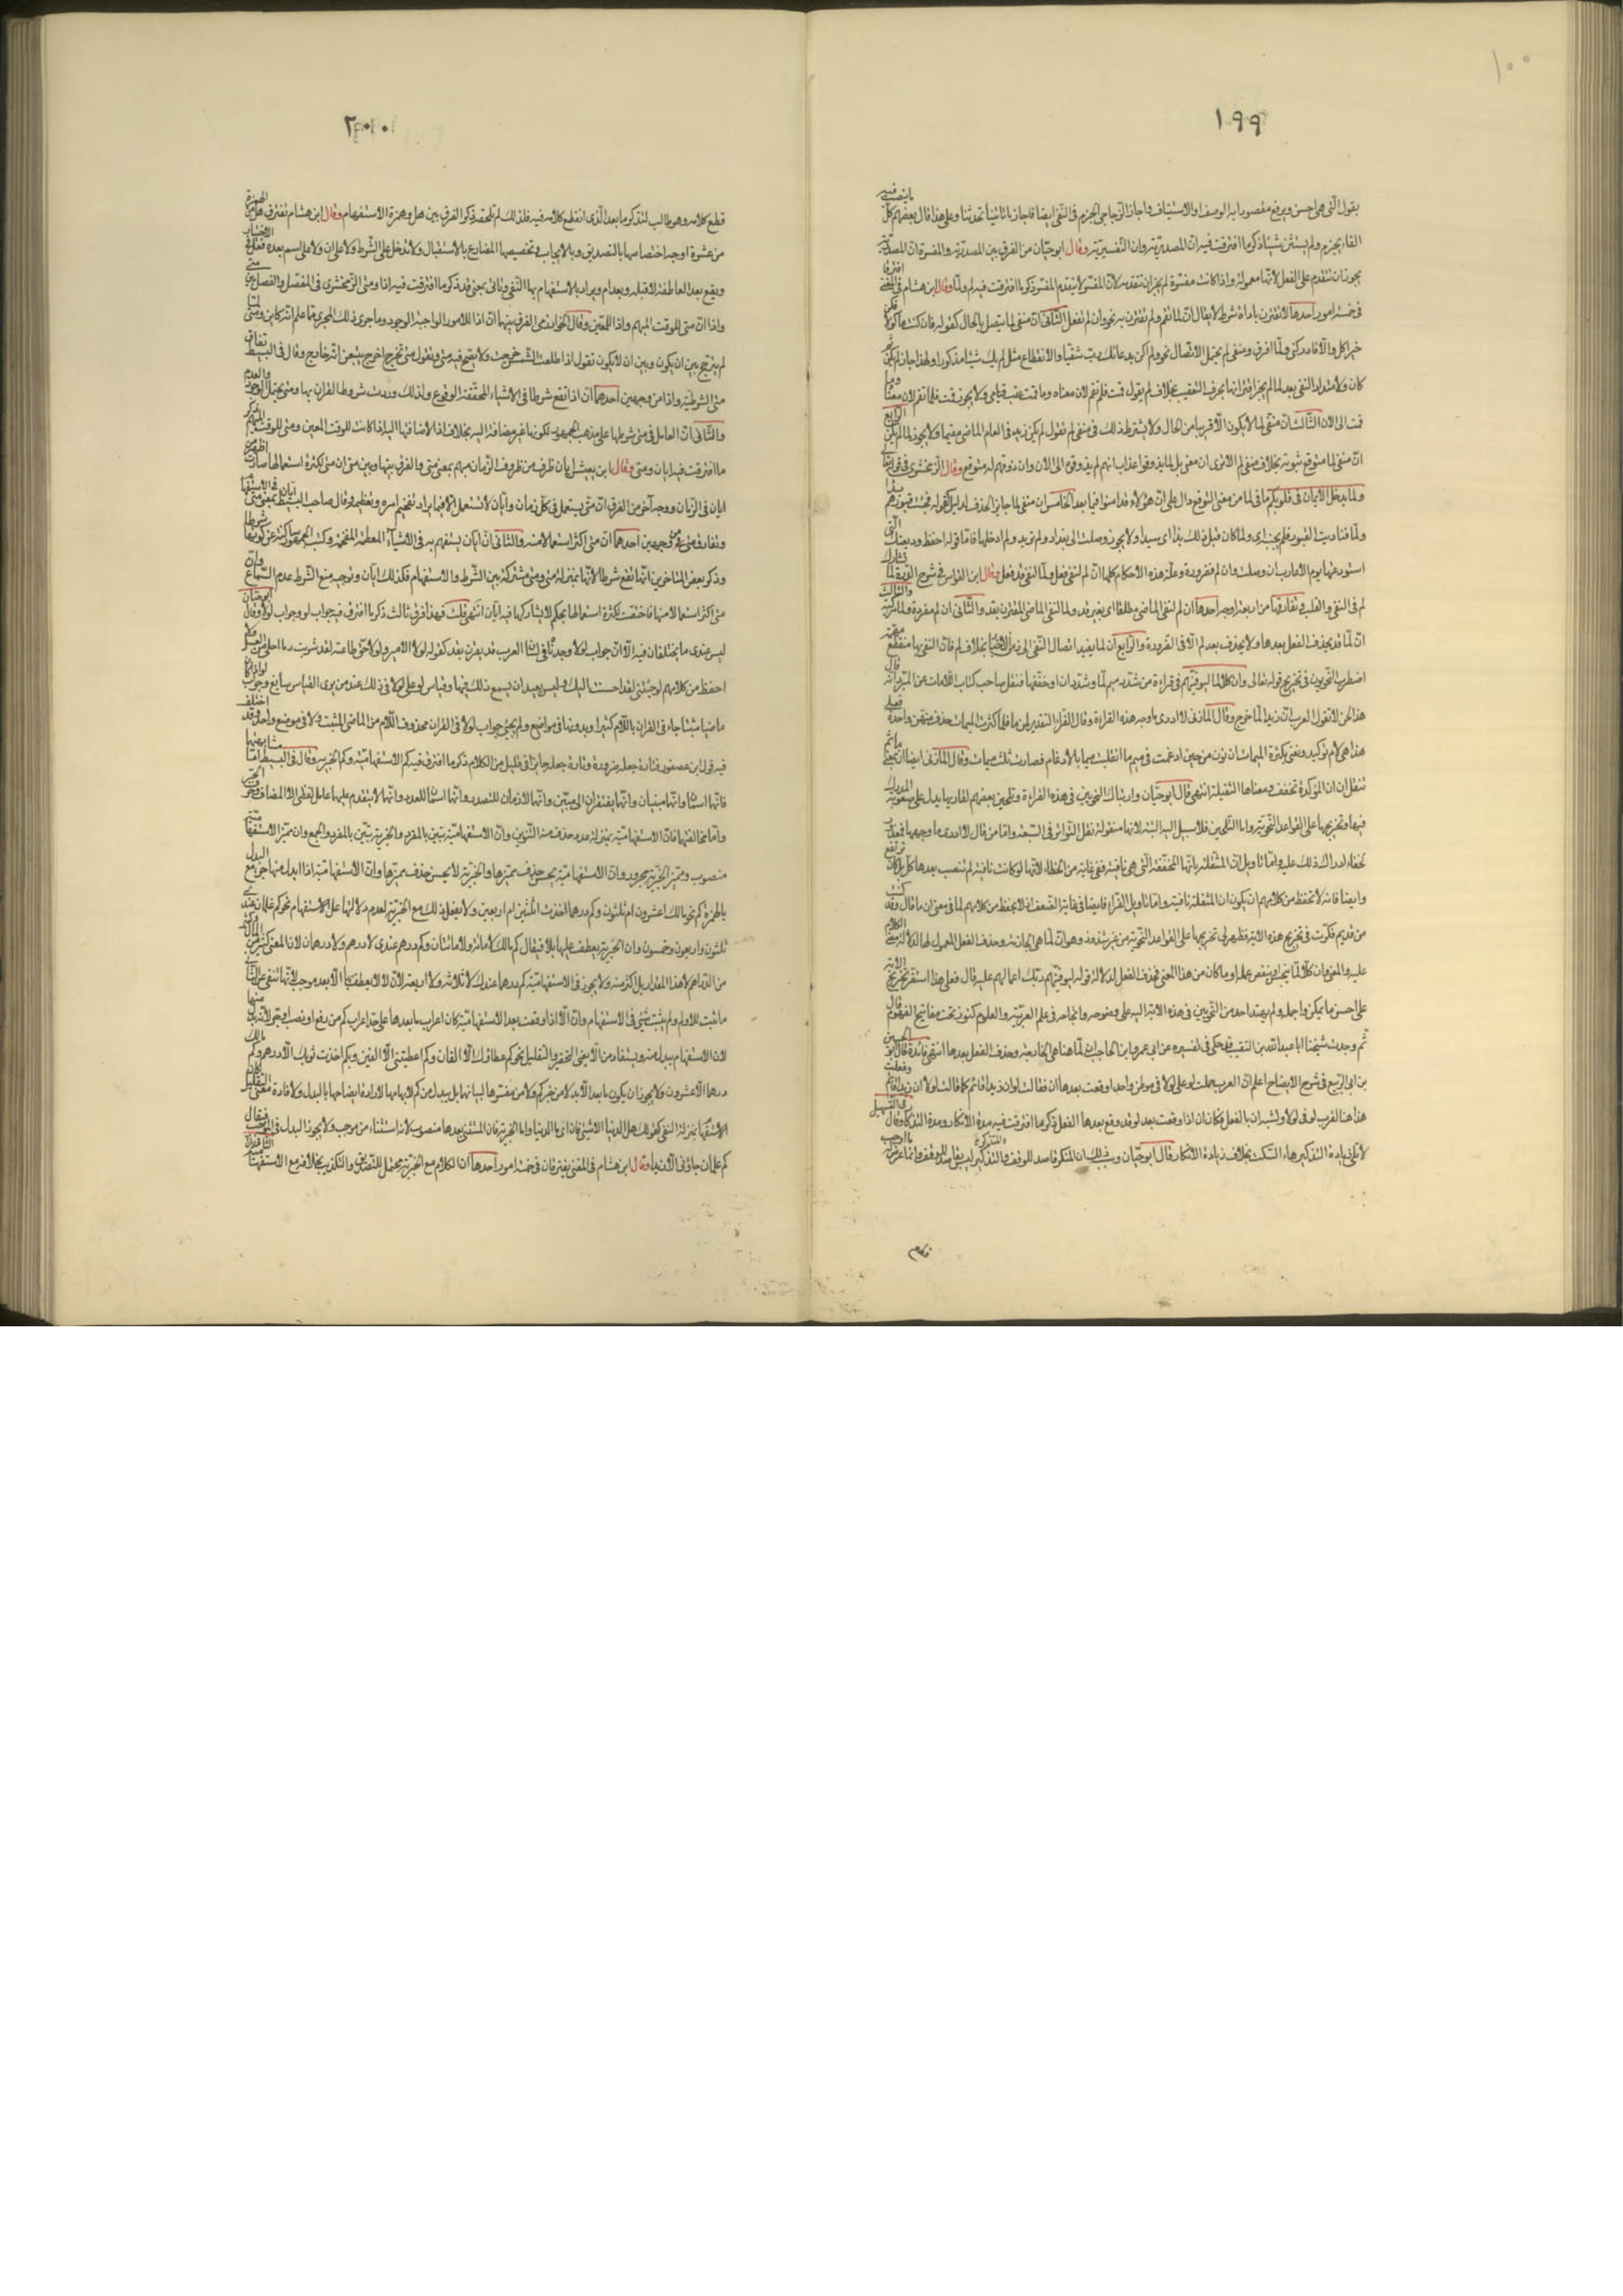 ١٠٠
١٩٩
بقول التى هى احسن ويرفع مقصودا به الوصف او الاستيناف واجاز الزجاجى الجزم فى النفى ايضا فاجاز ما تاتينا تحدثنا وعلى هذا قال بعضهم كل ما ينصب فيه
الفاء يجزم ولم يستثن شيئا ذكر ما افترقت فيه ان المصدرية وان التفسيرية وقال ابو حيان من الفرق بين المصدرية والمفسرة ان المصدرية
يجوز ان تتقدم على الفعل لانها معمولة واذا كانت مفسرة لم يجز ان تتقدم لان المفسر لا يتقدم المفسر ذكر ما افترقت فيه لم ولما وقال ابن هشام فى المغنى افترقا
فى خمسة امور احدها لا تقترن باداة شرط لا يقال ان لما تقم ولم تقترن به نحو وان لم تفعل الثانى ان منفى لما يتصل بالحال كقوله فان كنت ماكولا فكن
خير اكل والا فادركنى ولما امزق ومنفى لم يحتمل الاتصال نحو ولم اكن بدعائك رب شقيا والانقطاع مثل لم يك شيئا مذكورا ولهذا جاز لم يكن ثم
كان ولامتداد النفى بعد لما لم يجز اقترانها بحرف التعقيب بخلاف لم تقول قمت فلم تقم لان معناه وما قمت عقب قيامى ولا يجوز قمت فلما تقم لان معناه وما
قمت الى الان الثالث ان منفى لما لا يكون الا قريبا من الحال ولا يشترط ذلك فى منفى لم تقول لم يكن زيد فى العام الماضى مقيما ولا يجوز لما يكن الرابع
ان منفى لما متوقع ثبوته بخلاف منفى لم الا ترى ان معنى بل لما يذوقوا عذاب انهم لم يذوقوه الى الان وان ذوقهم له متوقع وقال الزمخشرى فى قوله تعالى
ولما يدخل الايمان فى قلوبكم ما فى لما من معنى التوقع دال على ان هؤلاء قد امنوا فيما بعد الخامس ان منفى لما جائز الحذف لدليل كقوله فجئت قبورهم بدءا
ولما فناديت القبور فلم يجبنه اى ولما اكن بدءا قبل ذلك اى سيدا ولا يجوز وصلت الى بغداد ولم تريد ولم ادخلها فاما قوله احفظ وديعتك التى
استودعتها يوم الاعازب ان وصلت وان لم فضرورة وعلة هذه الاحكام كلها ان لم لنفى فعل ولما لنفى قد فعل وقال ابن القواس فى شرح الدرة لما تشارك
لم فى النفى والقلب وتفارقها من اربعة اوجه احدها ان لم لنفى الماضى مطلقا اى بغير قد ولما لنفى الماضى المقترن بقد والثانى ان لم مفردة ولما مركبة والثالث
ان لما قد يحذف الفعل بعدها ولا يحذف بعد لم الا فى الضرورة والرابع ان لما يفيد اتصال النفى الى زمن الاخبار بخلاف لم فان النفى بها منقطع
اضطرب النحويون فى تخريج قوله تعالى وان كلا لما ليوفينهم فى قراءة من شدد ميم لما وشدد ان او خففها فنقل صاحب كتاب اللامات عن المبرد انه قال
هذا لحن لا تقول العرب ان زيدا لما خارج وقال المازنى لا ادرى ما وجه هذه القراءة وقال الفراء التقدير لمن ما فلما كثرت الميمات حذف منهن واحدة فعلى
هذا هى لام توكيد ونعنى بكثرة الميمات ان نون من حين ادغمت فى ميم ما انقلبت ميما بالادغام فصارت ثلث ميمات وقال المازنى ايضا ان بمعنى ما ثم
تثقل ان ان المؤكدة تخفف ومعناها الثقيلة انتهى قال ابو حيان وارتباك النحويين فى هذه القراءة وتلحين بعضهم لقاريها يدل على صعوبة المدرك
فيها وتخريجها على القواعد النحوية واما التلحين فلا سبيل اليه البتة لانها منقولة نقل التواتر فى السبعة واما من قال لا ادرى ما وجهها فمعذور
لخفاء ادراك ذلك عليه واما تاويل ان المثقلة بانها المخففة التى هى نافية ففى غاية من الخطاء لانها لو كانت نافية لم تنصب بعدها كل بل كان ترتفع
وايضا فانه لا تحفظ من كلامهم ان يكون ان المثقلة نافية واما تاويل الفراء فايضا فى غاية الضعف اذ لا يحفظ من كلامهم لما فى معنى لمن ما قال وقد كنت
من قديم فكرت فى تخريج هذه الاية فظهر لى تخريجها على القواعد النحوية من غير شذوذ وهو ان لما هى الجازمة وحذف الفعل المعمول لها لدلالة معنى الكلام
عليه والمعنى وان كلا لما ينجس او ينقص عمله او ما كان من هذا المعنى فحذف الفعل لدلالة قوله ليوفينهم ربك اعمالهم عليه قال فعلى هذا استقر تخريج الاية
على احسن ما يمكن واجمله ولم يهتد احد من النحويين فى هذه الاية اليه على وضوحه واتجاهه فى علم العربية والعلوم كنوز تحت مفاتيح الفهوم قال
ثم وجدت شيخنا ابا عبد الله بن النقيب قد حكى فى تفسيره عن ابى عمرو بن الحاجب ان لما هنا هى الجازمة وحذف الفعل بعدها انتهى فائدة قال ابو الحسين
بن ابى الربيع فى شرح الايضاح اعلم ان العرب حملت لو على لولا فى موطن واحد اوقعت بعدها ان فقالت لو ان زيدا قائم كما قالت لولا ان زيدا قائم وفعلت
هذا هنا لقرب لو فى لولا ولشبه ان بالفعل فكان ان اذا وقعت بعد لو قد وقع بعدها الفعل ذكر ما افترقت فيه مدة الانكار ومدة التذكار وقال فى التسهيل
لا تلى زيادة التذكير هاء السكت بخلاف زيادة الانكار قال ابو حيان وسبب ذلك ان المنكر قاصد للوقف والمتذكر ليس بقاصد للوقف وانما عرض له ما اوجب
٢٠٠
قطع كلامه وهو طالب لتذكر ما بعد الذى انقطع كلامه فيه فلذلك لم تلحقه ذكر الفرق بين هل وهمزة الاستفهام وقال ابن هشام تفترق هل من الهمزة
من عشرة اوجه اختصاصها بالتصديق وبالايجاب وتخصيصها المضارع بالاستقبال ولا تدخل على الشرط ولا على ان ولا على اسم بعده فعل فى الاختيار
وتقع بعد العاطف لا قبله وبعد ام ويراد بالاستفهام بها النفى وتاتى بمعنى قد ذكر ما افترقت فيه اذا ومتى الزمخشرى فى المفصل والفصل بين متى
واذا ان متى للوقت المبهم واذا للمعين وقال الخوارزمى الفرق بينهما ان اذا للامور الواجبة الوجود وما جرى ذلك المجرى مما علم انه كاين ومتى لما
لم يترجح بين ان يكون وبين ان لا يكون تقول اذا طلعت الشمس خرجت ولا يصح فيه متى وتقول متى تخرج اخرج لمن لم يتيقن انه خارج وقال فى البسيط تفارق
متى الشرطية واذا من وجهين احدهما ان اذا تقع شرطا فى الاشياء المحققة الوقوع ولذلك وردت شروط القران بها ومتى يحتمل الوجود والعدم
والثانى ان العامل فى متى شرطها على مذهب الجمهور لكونها غير مضافة اليه بخلاف اذا لاضافتها اليه اذا كانت للوقت المعين ومتى للوقت المبهم ذكر
ما افترقت فيه ايان ومتى وقال ابن يعيش ايان ظرف من ظروف الزمان مبهم بمعنى متى والفرق بينها وبين متى ان متى لكثرة استعمالها صارت اظهر من
ايان فى الزمان ووجه آخر من الفرق ان متى يستعمل فى كل زمان وايان لا تستعمل الا فيما يراد تفخيم امره وتعظيمه وقال صاحب البسيط بمعنى متى ايان فى الاستفهام
وتفارق متى من وجهين احدهما ان متى اكثر استعمالا منه والثانى ان ايان يستفهم به فى الاشياء المعظمة المفخمة وكتب الجمهور ساكتة عن كونها شرطا
وذكر بعض المتاخرين انها تقع شرطا لانها بمنزلة متى ومتى مشتركة بين الشرط والاستفهام فكذلك ايان وتوجيه منع الشرط عدم السماع وان
متى اكثر استعمالا منها فاختصت لكثرة استعمالها بحكم لا تشاركها فيه ايان انتهى قلت فهذا فرق ثالث ذكر ما افترق فيه جواب لو وجواب لولا وقال ابو حيان
ليس عندى ما يختلفان فيه الا ان جواب لولا وجدناه فى لسان العرب قد يقرن بقد كقوله لولا الامير ولولا حق طاعته لقد شربت دما احلى من العسل ولا
احفظ من كلامهم لو جئتنى لقد احسنت اليك وليس ببعيد ان يسمع ذلك فيها وقياس لو على لولا فى ذلك عند من يرى القياس سايغ وجواب لو اذا كان
ماضيا مثبتا جاء فى القران باللام كثيرا وبدونها فى مواضع ولم يجئ جواب لولا فى القران محذوف اللام من الماضى المثبت ولا فى موضع واحد وقد اختلف
فيه قول ابن عصفور فتارة جعله ضرورة وتارة جعله جايزا فى قليل من الكلام ذكر ما افترق فيه كم الاستفهامية وكم الخبرية وقال فى البسيط اما مشابهتهما
فانهما اسمان وانهما مبنيان وانهما يفتقران الى مبين وانهما لازمان للتصدر وانهما اسمان للعدد وانهما لا يتقدم عليهما عامل لفظى الا المضاف وحرف الجر
واما مخالفتهما فان الاستفهامية بمنزلة عدد حذف منه التنوين وان الاستفهامية تبين بالمفرد والخبرية تبين بالمفرد والجمع وان مميز الاستفهامية
منصوب ومميز الخبرية مجرور وان الاستفهامية يحسن حذف مميزها والخبرية لا يحسن حذف مميزها وان الاستفهامية اذا ابدل منها جئ مع البدل
بالهمزة كم نحو مالك اعشرون ام ثلثون وكم درهما اخذت اثلثين ام اربعين ولا يفعل ذلك مع الخبرية لعدم دلالتها على الاستفهام نحو كم غلمان عندى
ثلثون واربعون وخمسون وان الخبرية يعطف عليها بلا فيقال كم مالك لا مائة ولا مائتان وكم درهم عندى لا درهم ولا درهمان لان المعنى كثير من المال وكثير
من الدراهم لا هذا المقدار بل اكثر منه ولا يجوز فى الاستفهامية كم درهما عندك لا ثلاثة ولا اربعة لان لا لا يعطف بها الا بعد موجب لانها تنفى عن الثانى
ما ثبت للاول ولم يثبت شئ فى الاستفهام وان الا اذا وقعت بعد الاستفهامية كان اعراب ما بعدها على حد اعراب كم من رفع او نصب او جر لانه بدل منها
لان الاستفهام يبدل منه ويستفاد من الا معنى التحقير والتقليل نحو كم عطاؤك الا الفان وكم اعطيتنى الا الفين وبكم اخذت ثوبك الا درهم وكم مالك
درهما الا عشرون ولا يجوز ان يكون ما بعد الا بدلا من خبر كم ولا من مفسرها لبيانهما بل يبدل من كم لابهامها لارادة ايضاحها بالبدل ولافادة معنى التقليل
الاستفهام بمنزلة النفى كقولك هل الدنيا الا شئ فان اى ما الدنيا واما الخبرية فان المستثنى بعدها منصوب لانه استثناء من موجب ولا يجوز البدل فى الموجب فيقال
كم غلمان جاؤنى الا زيدا وقال ابن هشام فى المغنى يفترقان فى خمسة امور احدها ان الكلام مع الخبرية محتمل للتصديق والتكذيب بخلافه مع الاستفهامية